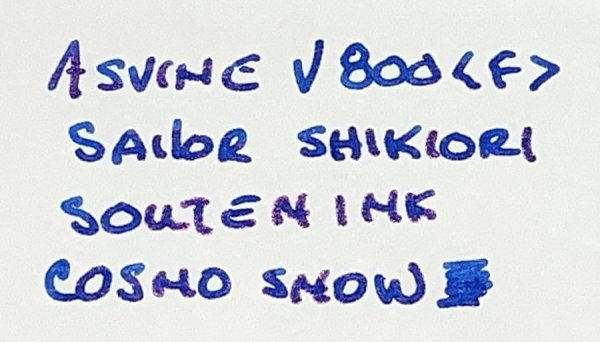 ASVINE V800<F>
SAILOR SHIKIORI
SOUTEN INK
COSMO SNOW